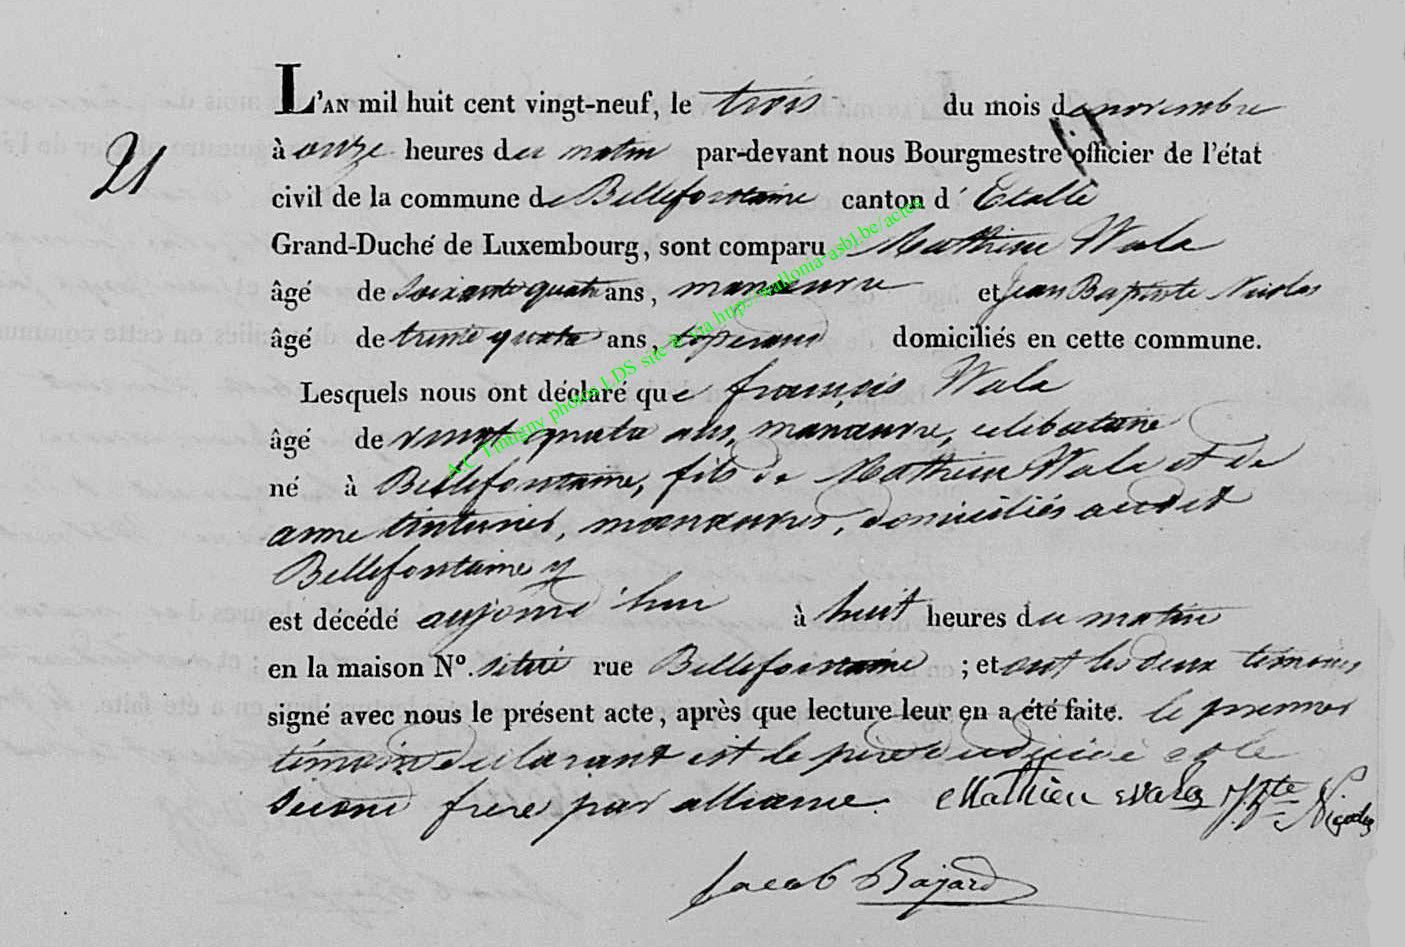 L'AN mil huit cent vingt-neuf, le trois du mois de novembre
21
à onze heures du matin par-devant nous Bourgmestre officier de l'état
civil de la commune de Bellefontaine canton d'Etalle
Grand-Duché de Luxembourg, sont comparu Mathieu Wala
âgé de soixante quatre ans, manœuvre et Jean Baptiste Nicolas
âgé de trente quatre ans, domiciliés en cette commune.
Lesquels nous ont déclaré que françois Wala
âgé de vingt quatre ans, manœuvre, celibataire
né à Bellefontaine, fils de Mathieu Wala et de
anne manœuvres, domiciliés audit
Bellefontaine
est décédé aujourd'hui à huit heures du matin
en la maison N°. située rue Bellefontaine ; et ont les deux témoins
signé avec nous le présent acte, après que lecture leur en a été faite. le premier
témoin déclarant est le père du décédé et le
second frere par alliance. Mathieu Wala J Bte Nicolas
Jacob Bajard
A.C Tintigny photos LDS site & via http://wallonia-asbl.be/actes